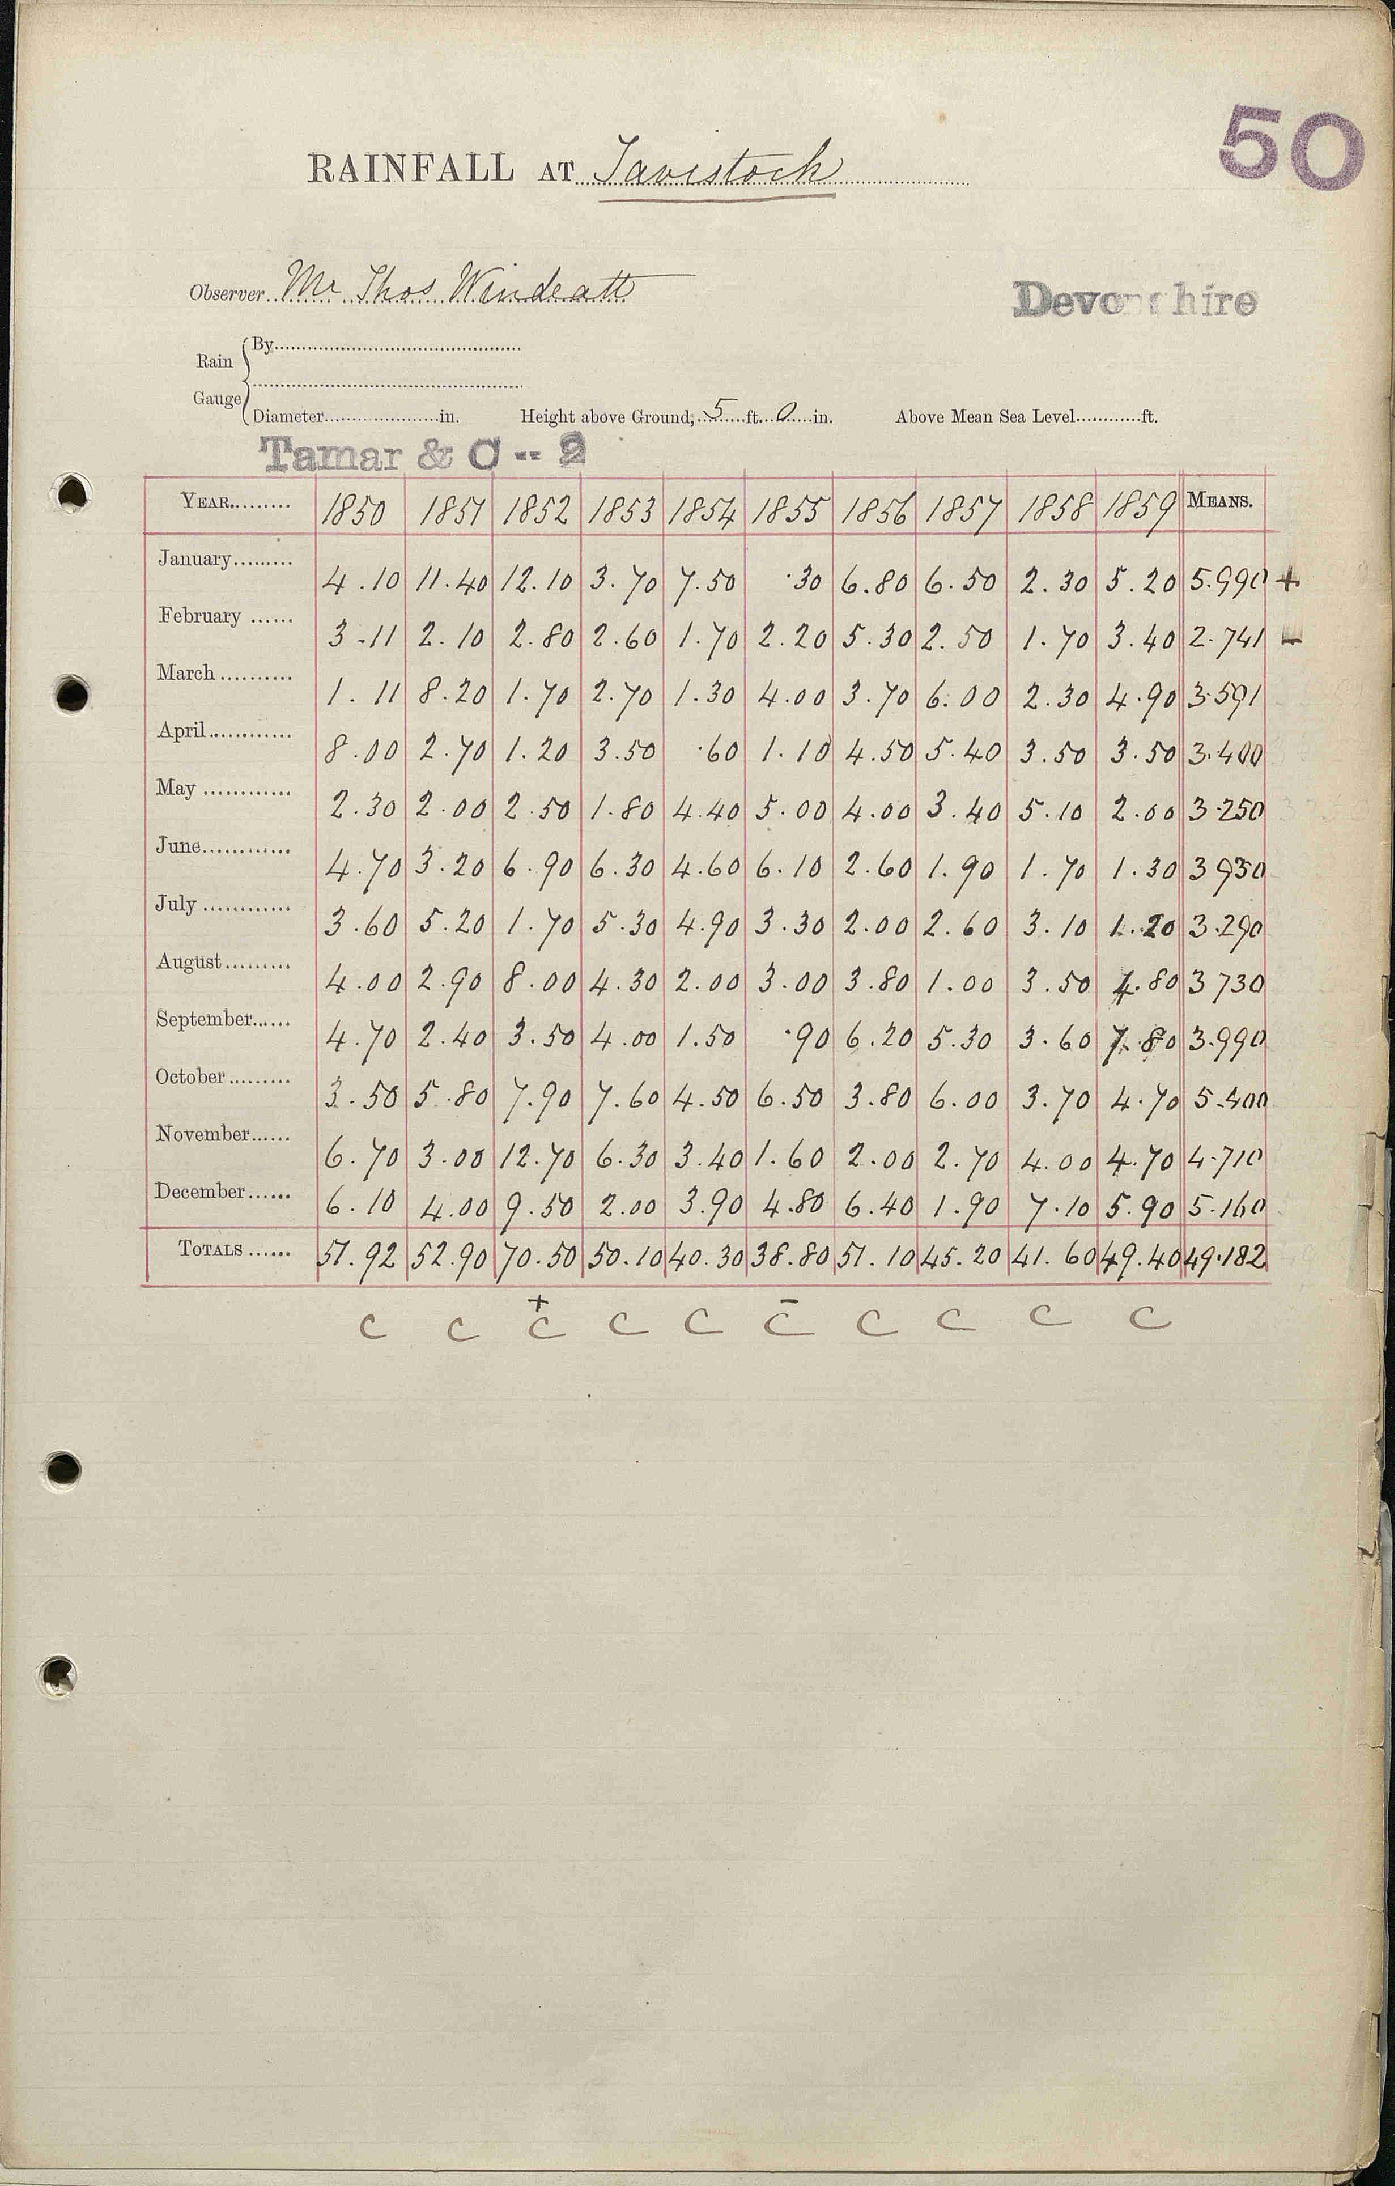 50
RAINFALL AT Tavistock
Observer Mr Thos Windeatt
Devonshire
Rain Gauge
By
Diameter in. Height above Ground, 5 ft. 0 in. Above Mean Sea Level ft.
Tamar & C -- 2
YEAR 1850 1851 1852 1853 1854 1855 1856 1857 1858 1859 MEANS.
January 4.10 11.40 12.10 3.70 7.50 .30 6.80 6.50 2.30 5.20 5.990 +
February 3.11 2.10 2.80 2.60 1.70 2.20 5.30 2.50 1.70 3.40 2.741 -
March 1.11 8.20 1.70 2.70 1.30 4.00 3.70 6.00 2.30 4.90 3.591
April 8.00 2.70 1.20 3.50 .60 1.10 4.50 5.40 3.50 3.50 3.400
May 2.30 2.00 2.50 1.80 4.40 5.00 4.00 3.40 5.10 2.00 3.250
June 4.70 3.20 6.90 6.30 4.60 6.10 2.60 1.90 1.70 1.30 3 930
July 3.60 5.20 1.70 5.30 4.90 3.30 2.00 2.60 3.10 1.20 3.290
August 4.00 2.90 8.00 4.30 2.00 3.00 3.80 1.00 3.50 4.80 3 730
September 4.70 2.40 3.50 4.00 1.50 .90 6.20 5.30 3.60 7.80 3.990
October 3.50 5.80 7.90 7.60 4.50 6.50 3.80 6.00 3.70 4.70 5.400
November 6.70 3.00 12.70 6.30 3.40 1.60 2.00 2.70 4.00 4.70 4.710
December 6.10 4.00 9.50 2.00 3.90 4.80 6.40 1.90 7.10 5.90 5.160
TOTALS 51.92 52.90 70.50 50.10 40.30 38.80 51.10 45.20 41.60 49.40 49.182
+ -
C C C C C C C C C C